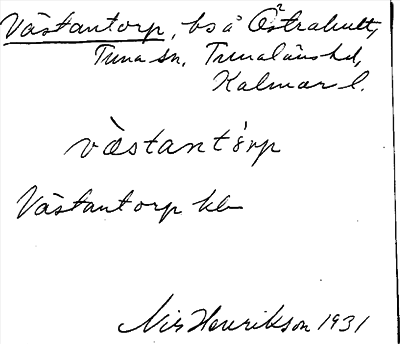 Västantorp, bs å Östrahult,
Tuna sn, Tunaläns hd,
Kalmar l.
västantòrp
Västantorp kb
Nils Henrikson 1931